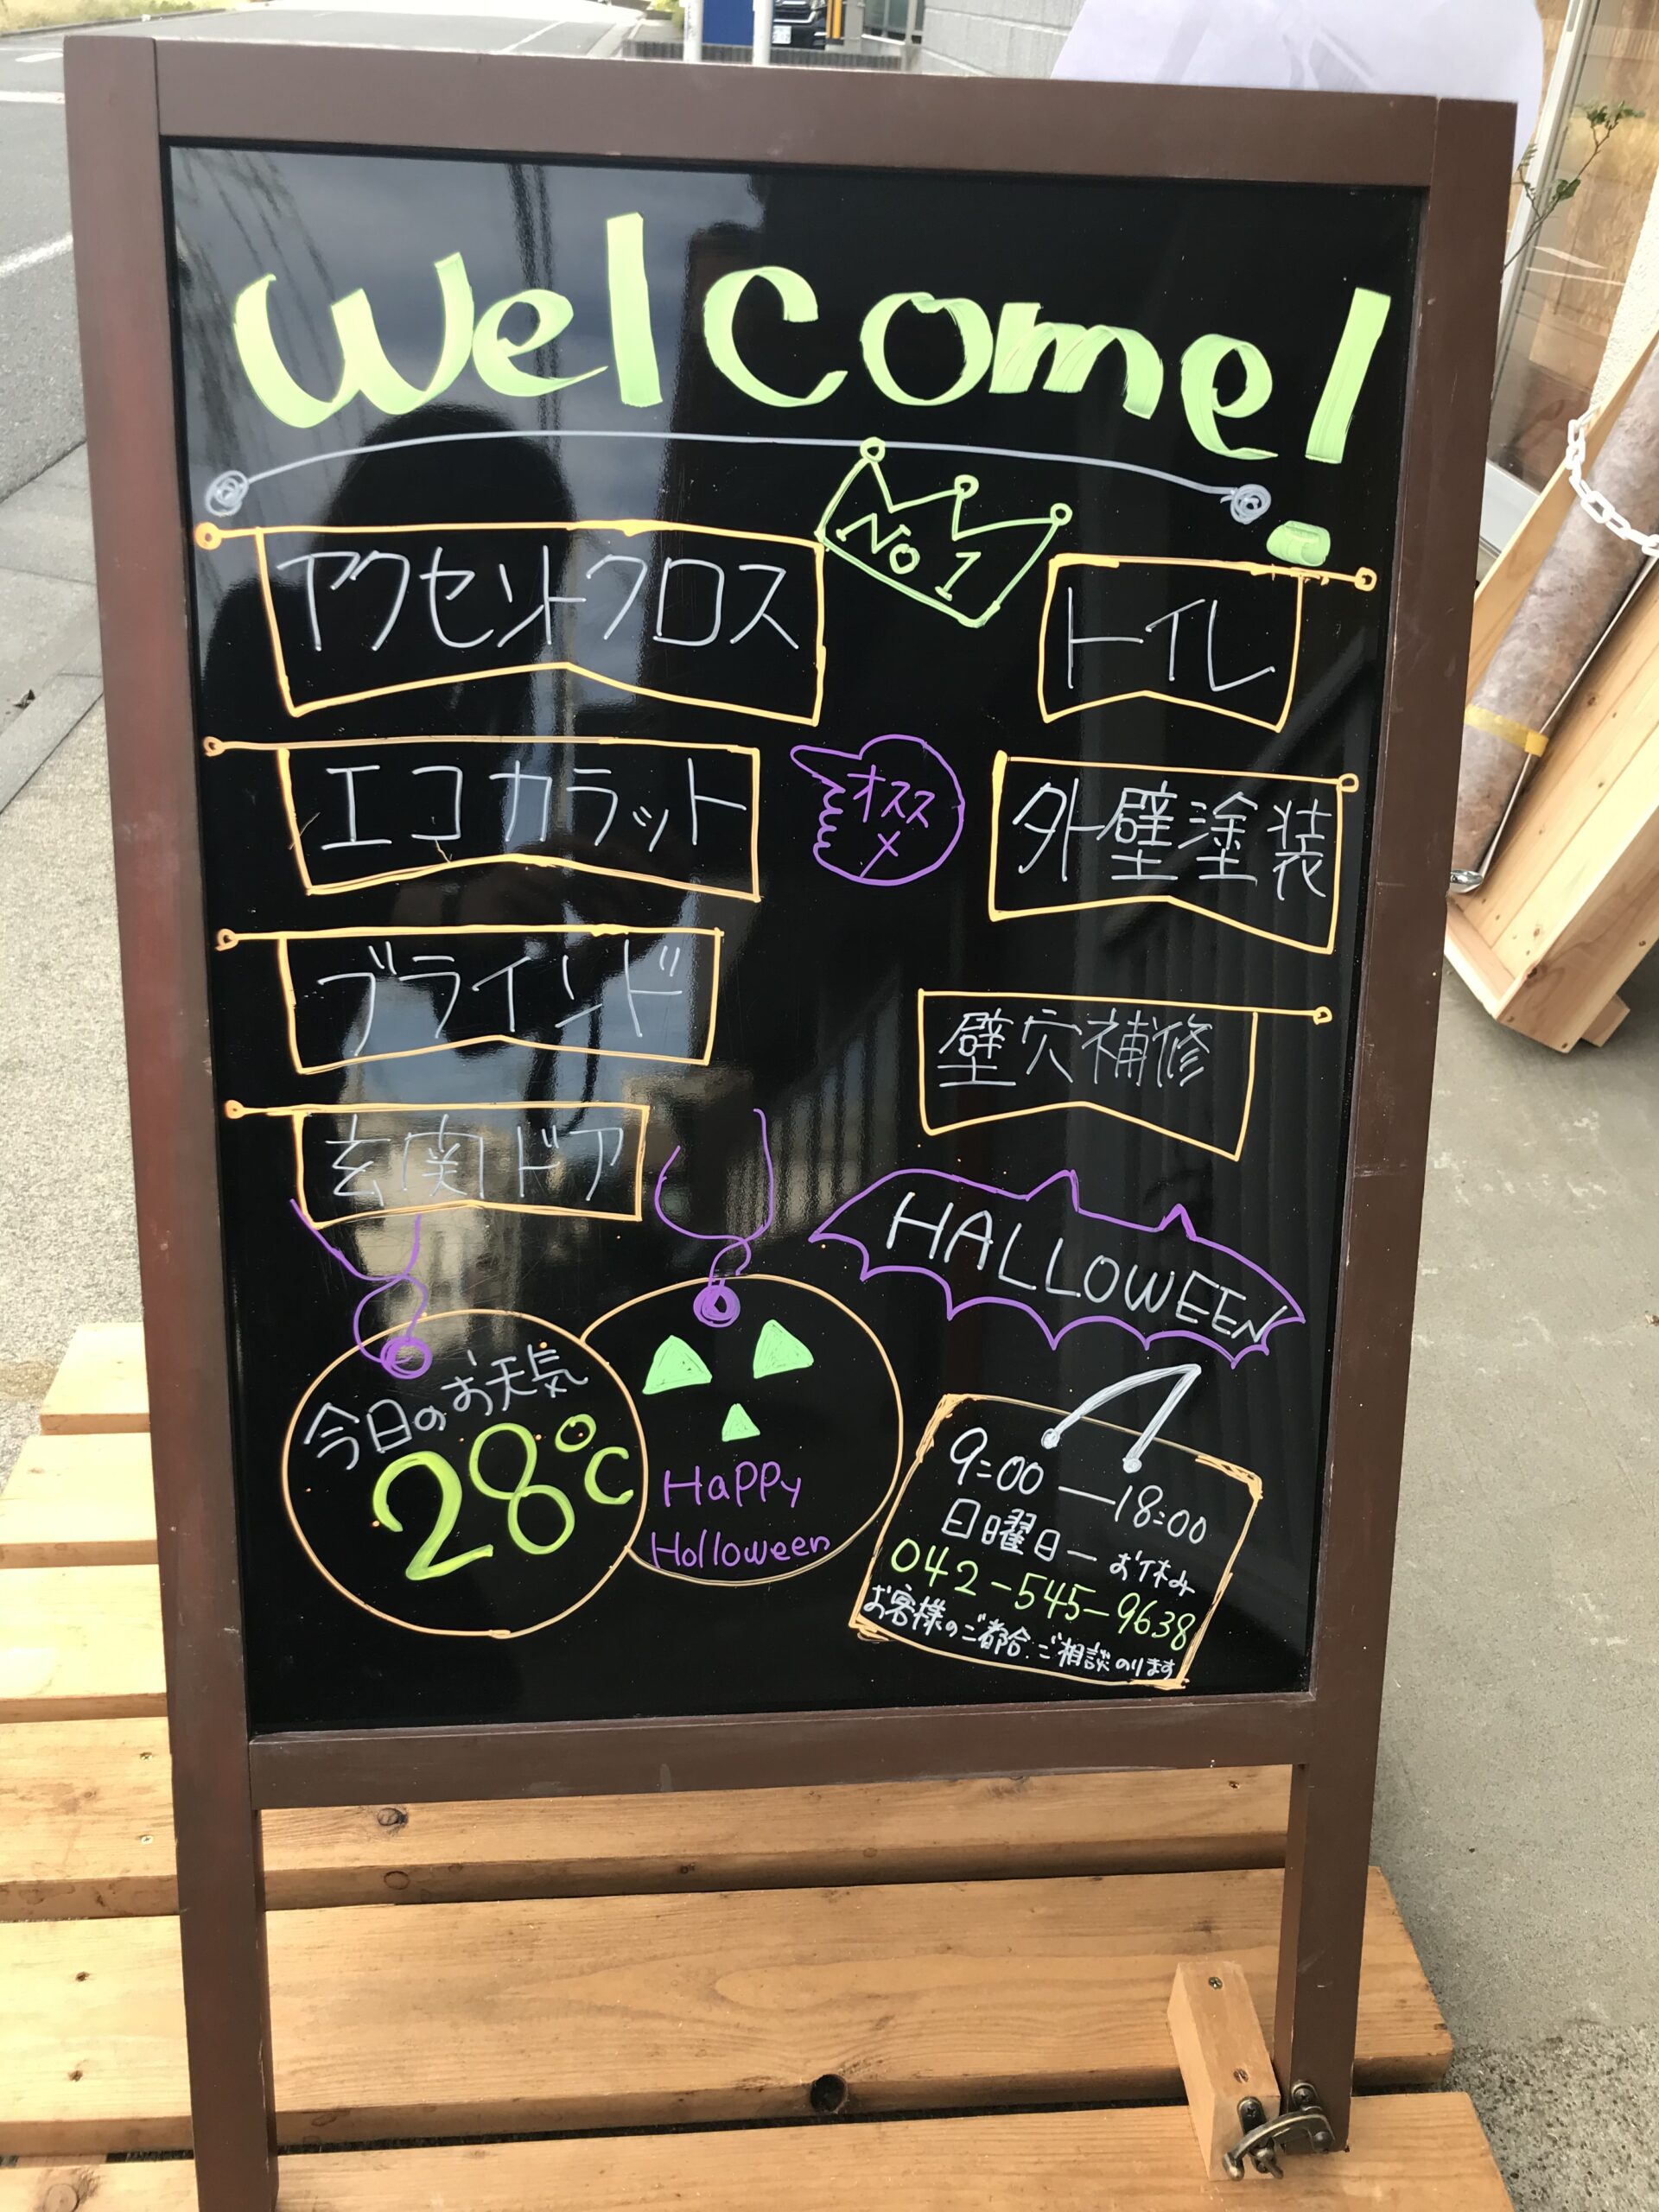 Welcome!
No 1
アクセントクロス
トイレ
エコカラット
オスス
メ
外壁塗装
ブラインド
壁穴補修
玄関ドア
HALLOWEEN
今日のお天気
28℃
HaPPy
Holloween
9:00―18:00
日曜日―お休み
042-545-9638
お客様のご都合.ご相談のります